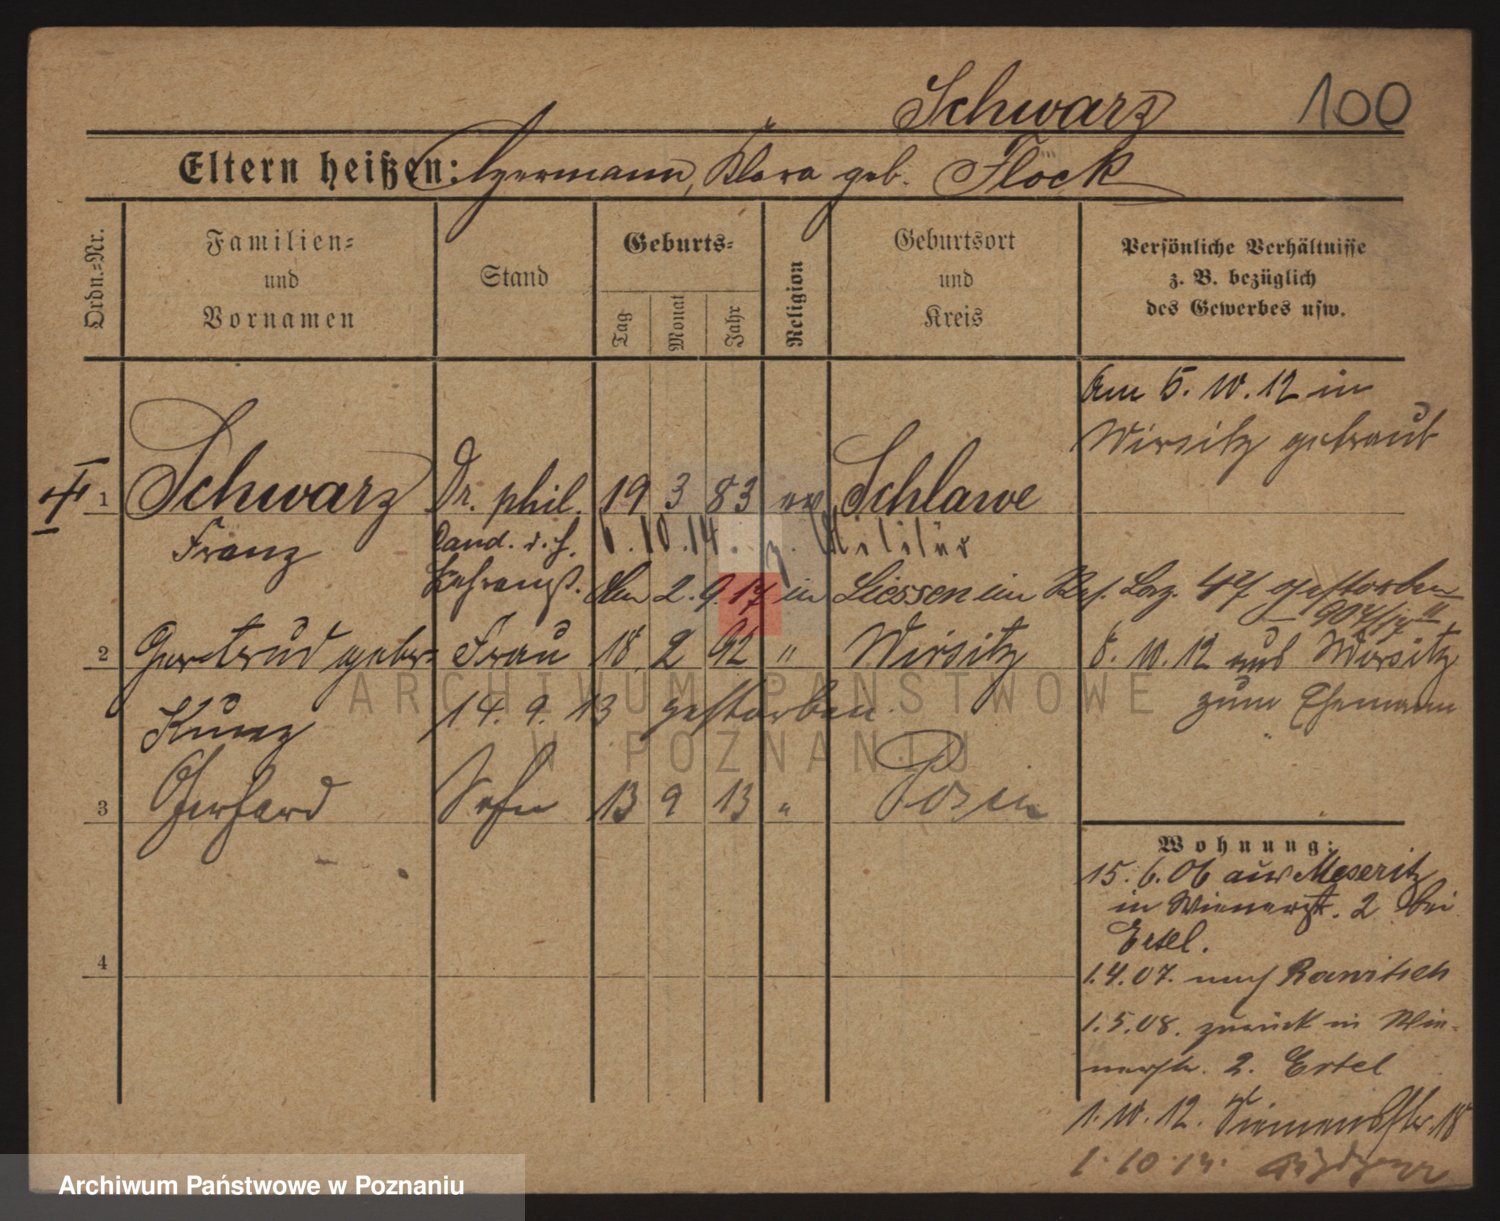 Schwarz 100
Eltern heißen: Hermann, Klara geb. Flöck
Ordn.-Nr.
Familien- und Vornamen
Stand
Geburts-
Tag
Monat
Jahr
Religion
Geburtsort und Kreis
Persönliche Verhältnisse
z. B. bezüglich
des Gewerbes usw.
Am 5. 10. 12 in
Wirsitz getraut
1 Schwarz Dr. phil. 19 3 83 ev Schlawe
Franz Cand. d. h. 6. 10. 14. z. Militär
Lehramts. Am 2. 9 17 in Liessen im Res. Laz. 47 gestorben
2 Gertrud gebor- Frau 18 2 92 " Wirsitz 8. 10. 12 aus Wirsitz
zum Ehemann
Kunz 14. 9. 13 gestorben.
3 Gerhard Sohn 13 9 13 " Posen
4
Wohnung:
15. 6. 06 aus Meseritz
in Wienerstr. 2 bei
Ertel.
1. 4. 07. nach Rawitsch
1. 5. 08. zurück in Wie-
nerstr. 2. Ertel
1. 10. 12. Siemensstr. 18
1. 10. 14.
ARCHIWUM PAŃSTWOWE
W POZNANIU
Archiwum Państwowe w Poznaniu